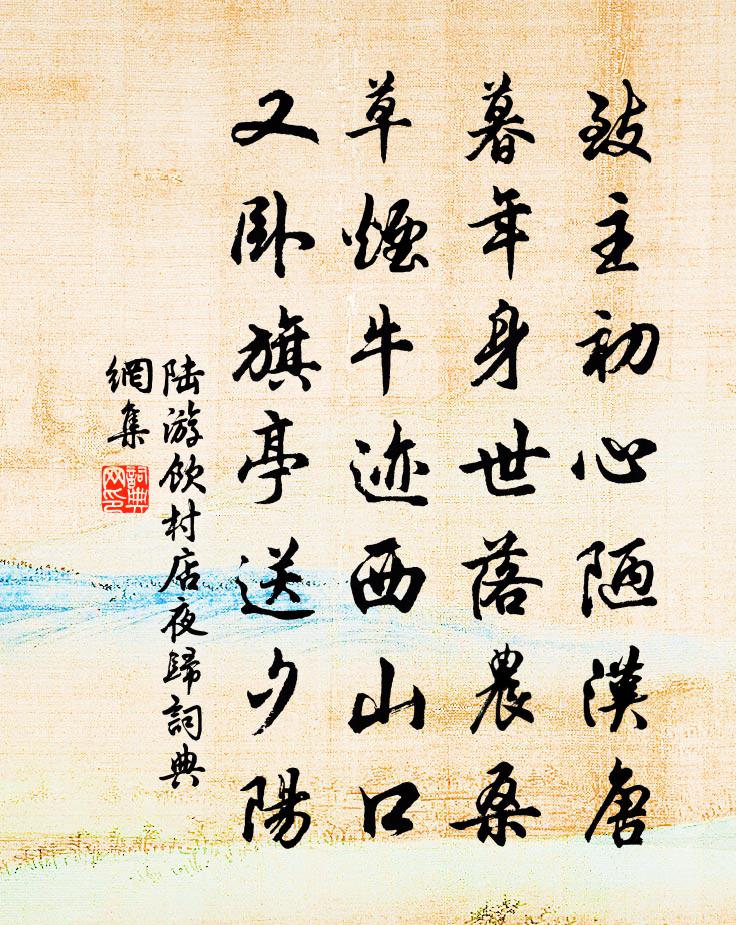 致主初心陋漢唐
暮年身世落農桑
草煙牛迹西山口
又卧旗亭送夕陽
陆游飲村店夜歸詞典
網集
詞典
网印